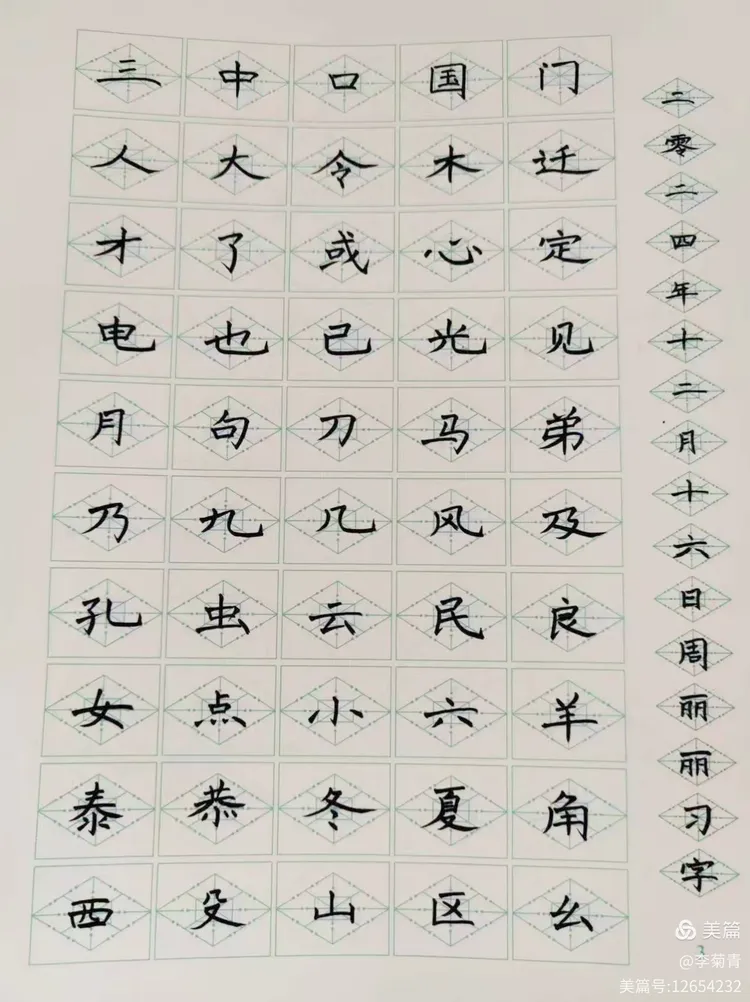 三中口国门
人大令木迁
才了或心定
电也己光见
月句刀马弟
乃九几风及
孔虫云民良
女点小六羊
泰恭冬夏角
西殳山区幺
二零二四年十二月十六日周丽丽习字
3
美篇
@李菊青
美篇号:12654232